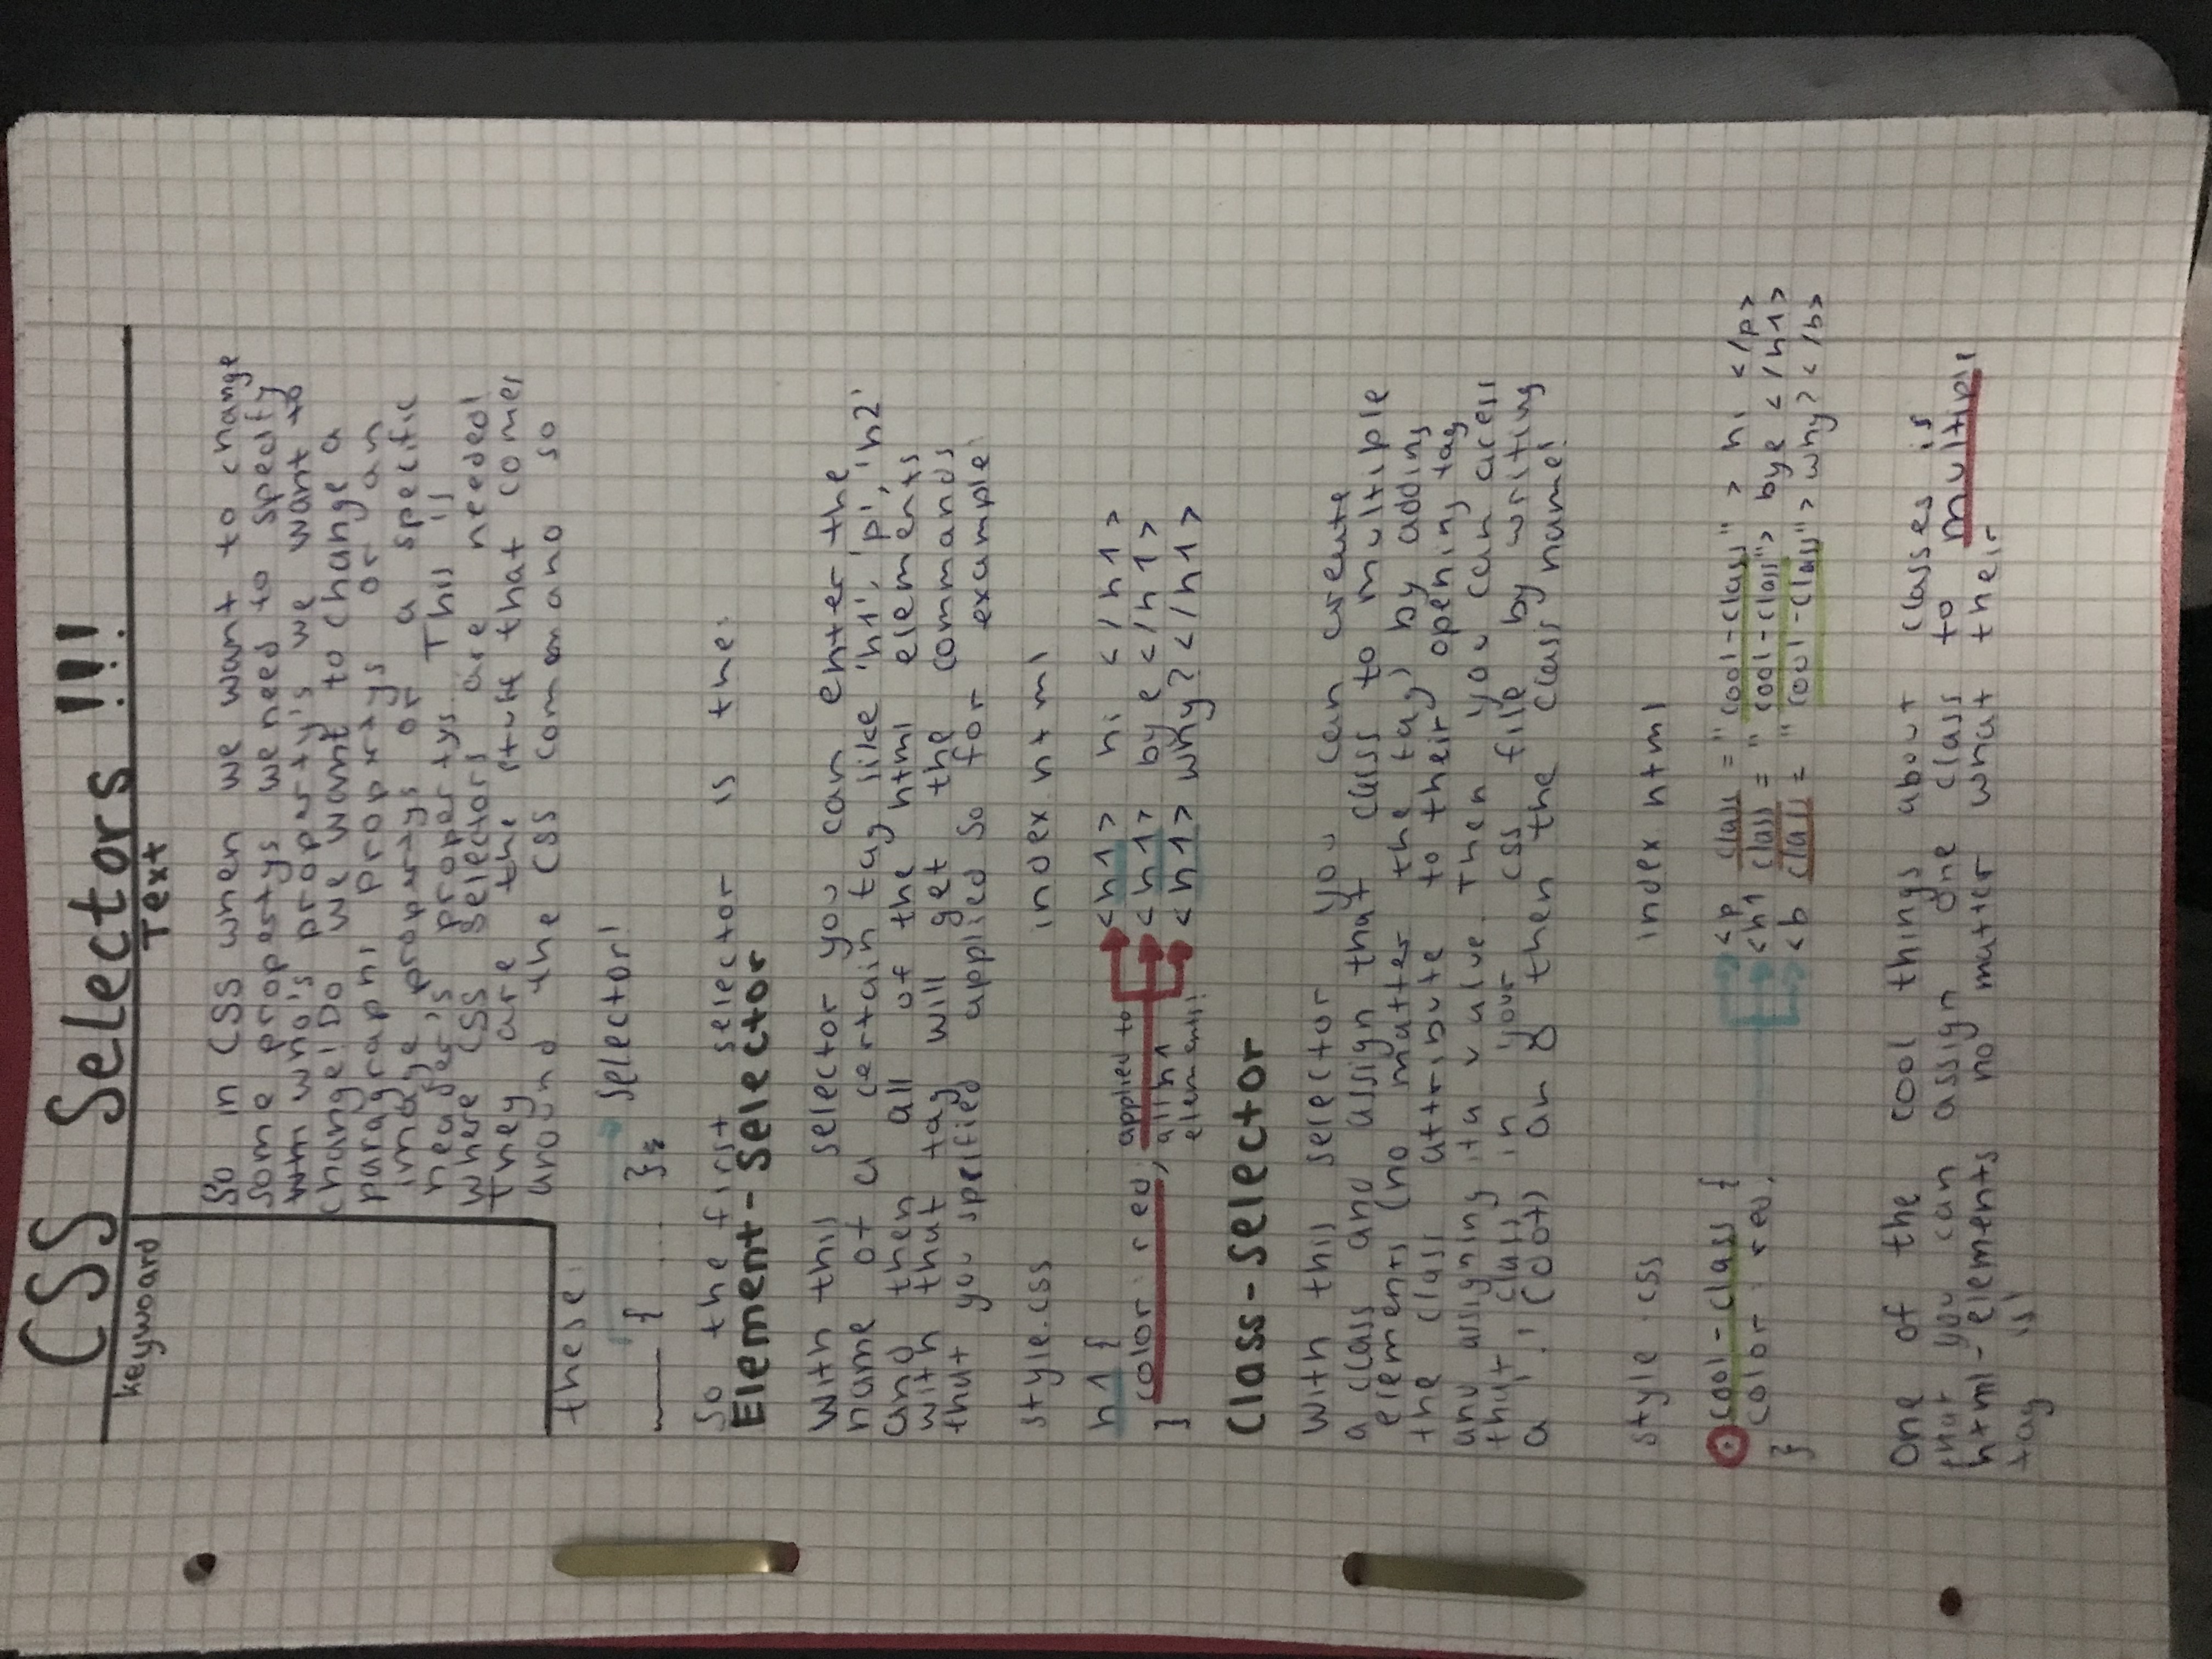 CSS Selectors !!!
keywoard
Text
So in CSS when we want to change
some propertys we need to specify
who's property's we want to
change! Do we want to change a
paragraphs Propertys or an
image propertys or a specific
header's propertys. This is
where CSS selectors are needed!
They are the stuff that comes
around the CSS command so
these:
selector!
___ { ... }
So the first selector is the:
Element-Selector
With this selector you can enter the
name of a certain tag like 'h1', 'p', 'h2'
and then all of the html elements
with that tag will get the commands
that you specified applied so for example:
style.css index.html
h1 { <h1> hi </h1>
color: red; applied to <h1> bye </h1>
} all h1 <h1> why? </h1>
elements!
Class-Selector
With this selector you can create
a class and assign that calss to multiple
elements (no matter the tag) by adding
the class attribute to their opening tag
and assigning it a value. Then you can acess
that class in your css file by writing
a '.' (dot) and then the class name!
style.css index.html
.cool-class { <p class = "cool-class" > hi </p>
color: red; <h1 class = "cool-class"> bye </h1>
} <b class = "cool-class"> why? </b>
One of the cool things about classes is
that you can assign one class to multiple
html-elements no matter what their
tag is!